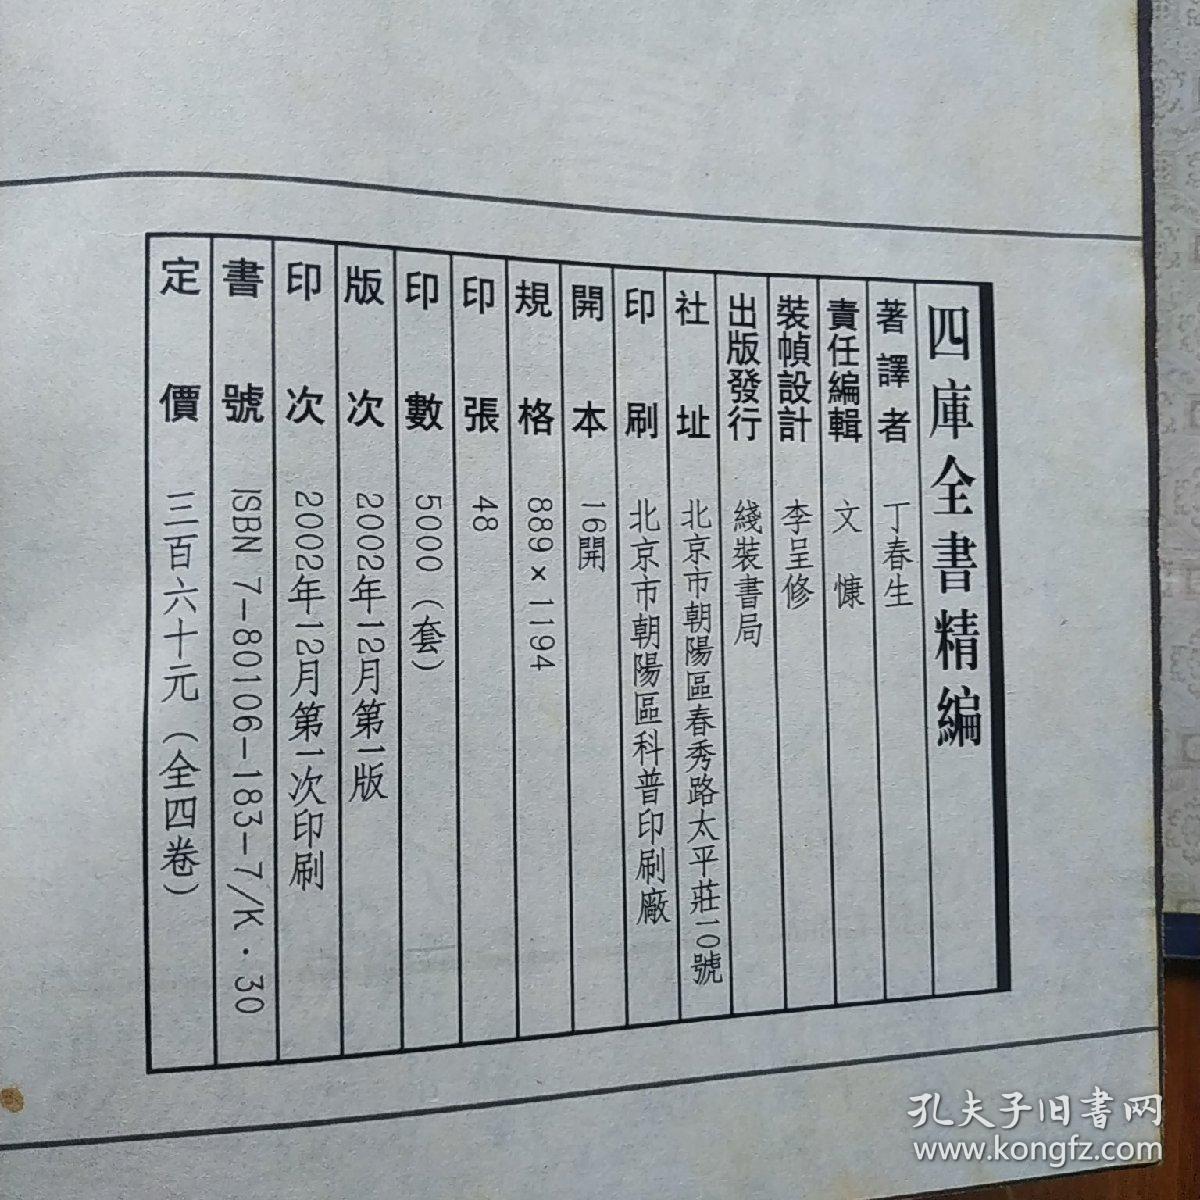 四庫全書精編
著譯者 丁春生
責任編輯 文慷
裝幀設計 李呈修
出版發行 綫裝書局
社址 北京市朝陽區春秀路太平莊10號
印刷 北京市朝陽區科普印刷廠
開本 16開
規格 889×1194
印張 48
印數 5000(套)
版次 2002年12月第1版
印次 2002年12月第1次印刷
書號 ISBN 7-80106-183-7/K·30
定價 三百六十元(全四卷)
孔夫子旧書网
www.kongfz.com